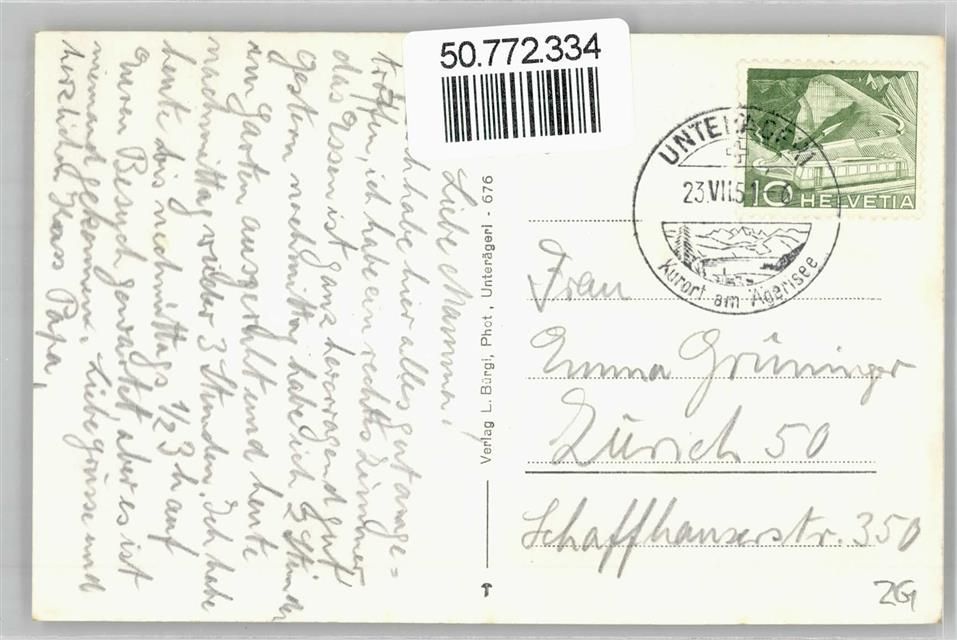 50.772.334
UNTERÄGERI
23.VII.51-6
Kurort am Ägerisee
10 HELVETIA
Liebe Mamma!
habe hier alles gut ange=
troffen, ich habe ein rechtes Zimmer
das Essen ist ganz hervorragend gut
Gestern nachmittag habe ich 2 Stunden
im Garten ausgeruht und heute
nachmittag wieder 3 Stunden. Ich habe
heute bis nachmittags 1/2 3 h auf
Euren Besuch gewartet, aber es ist
niemand gekommen. Liebe Grüsse und
herzliche Papa,
Verlag L. Bürgi, Phot., Unterägeri - 676
Frau
Emma Grüninger
Zürich 50
Schaffhauserstr. 350
ZG